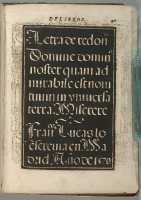 DE LIBROS.
Letra de redon
Domine domin
noster quam ad
mirabile est nom
tuum in vniuersa
terra. Miserere
Fran.co Lucas lo
escreuia en Ma
drid Año de 1570